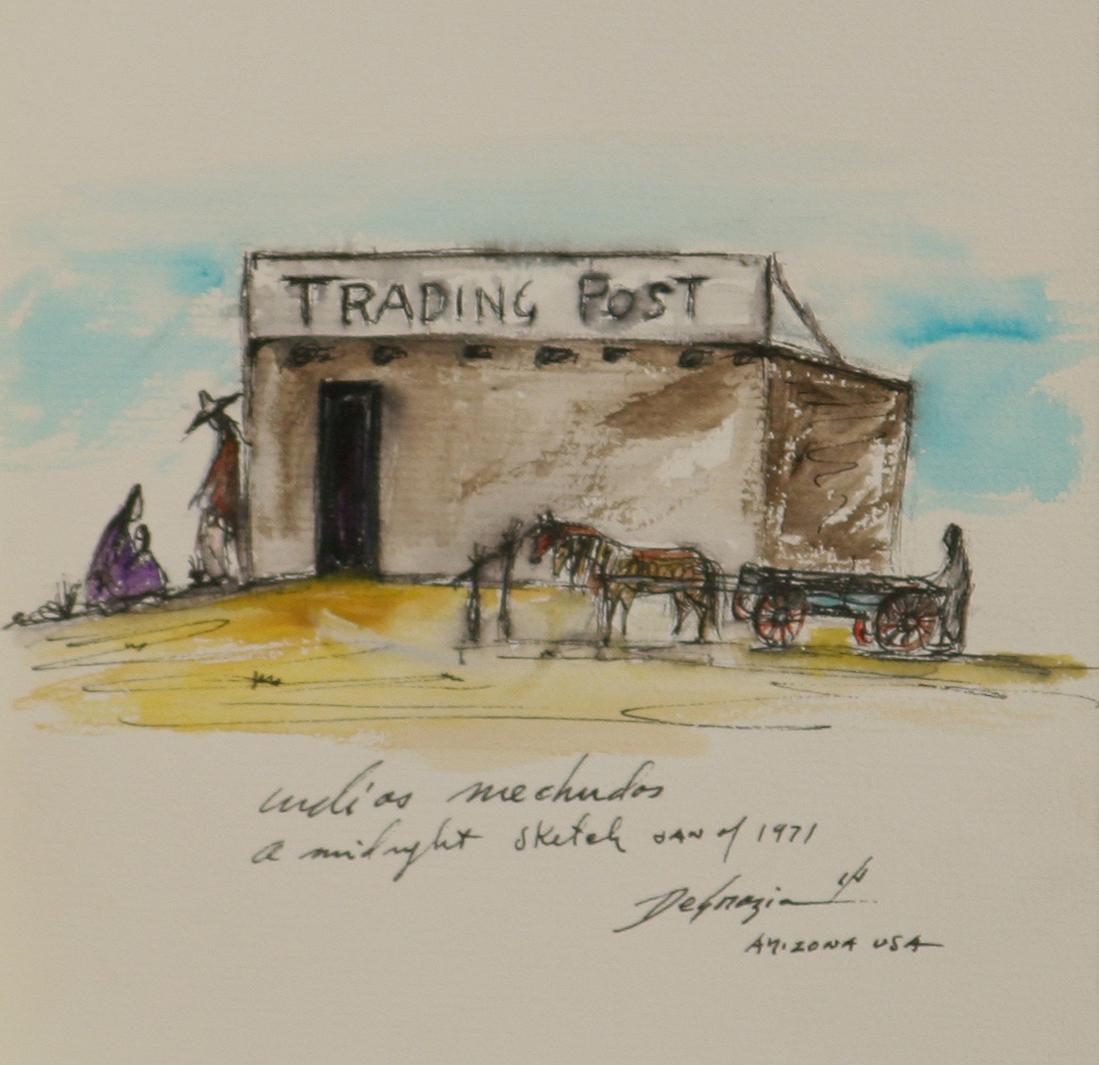 TRADING POST
indios mechudos
a midnight sketch JAN of 1971
DeGrazia
ARIZONA USA